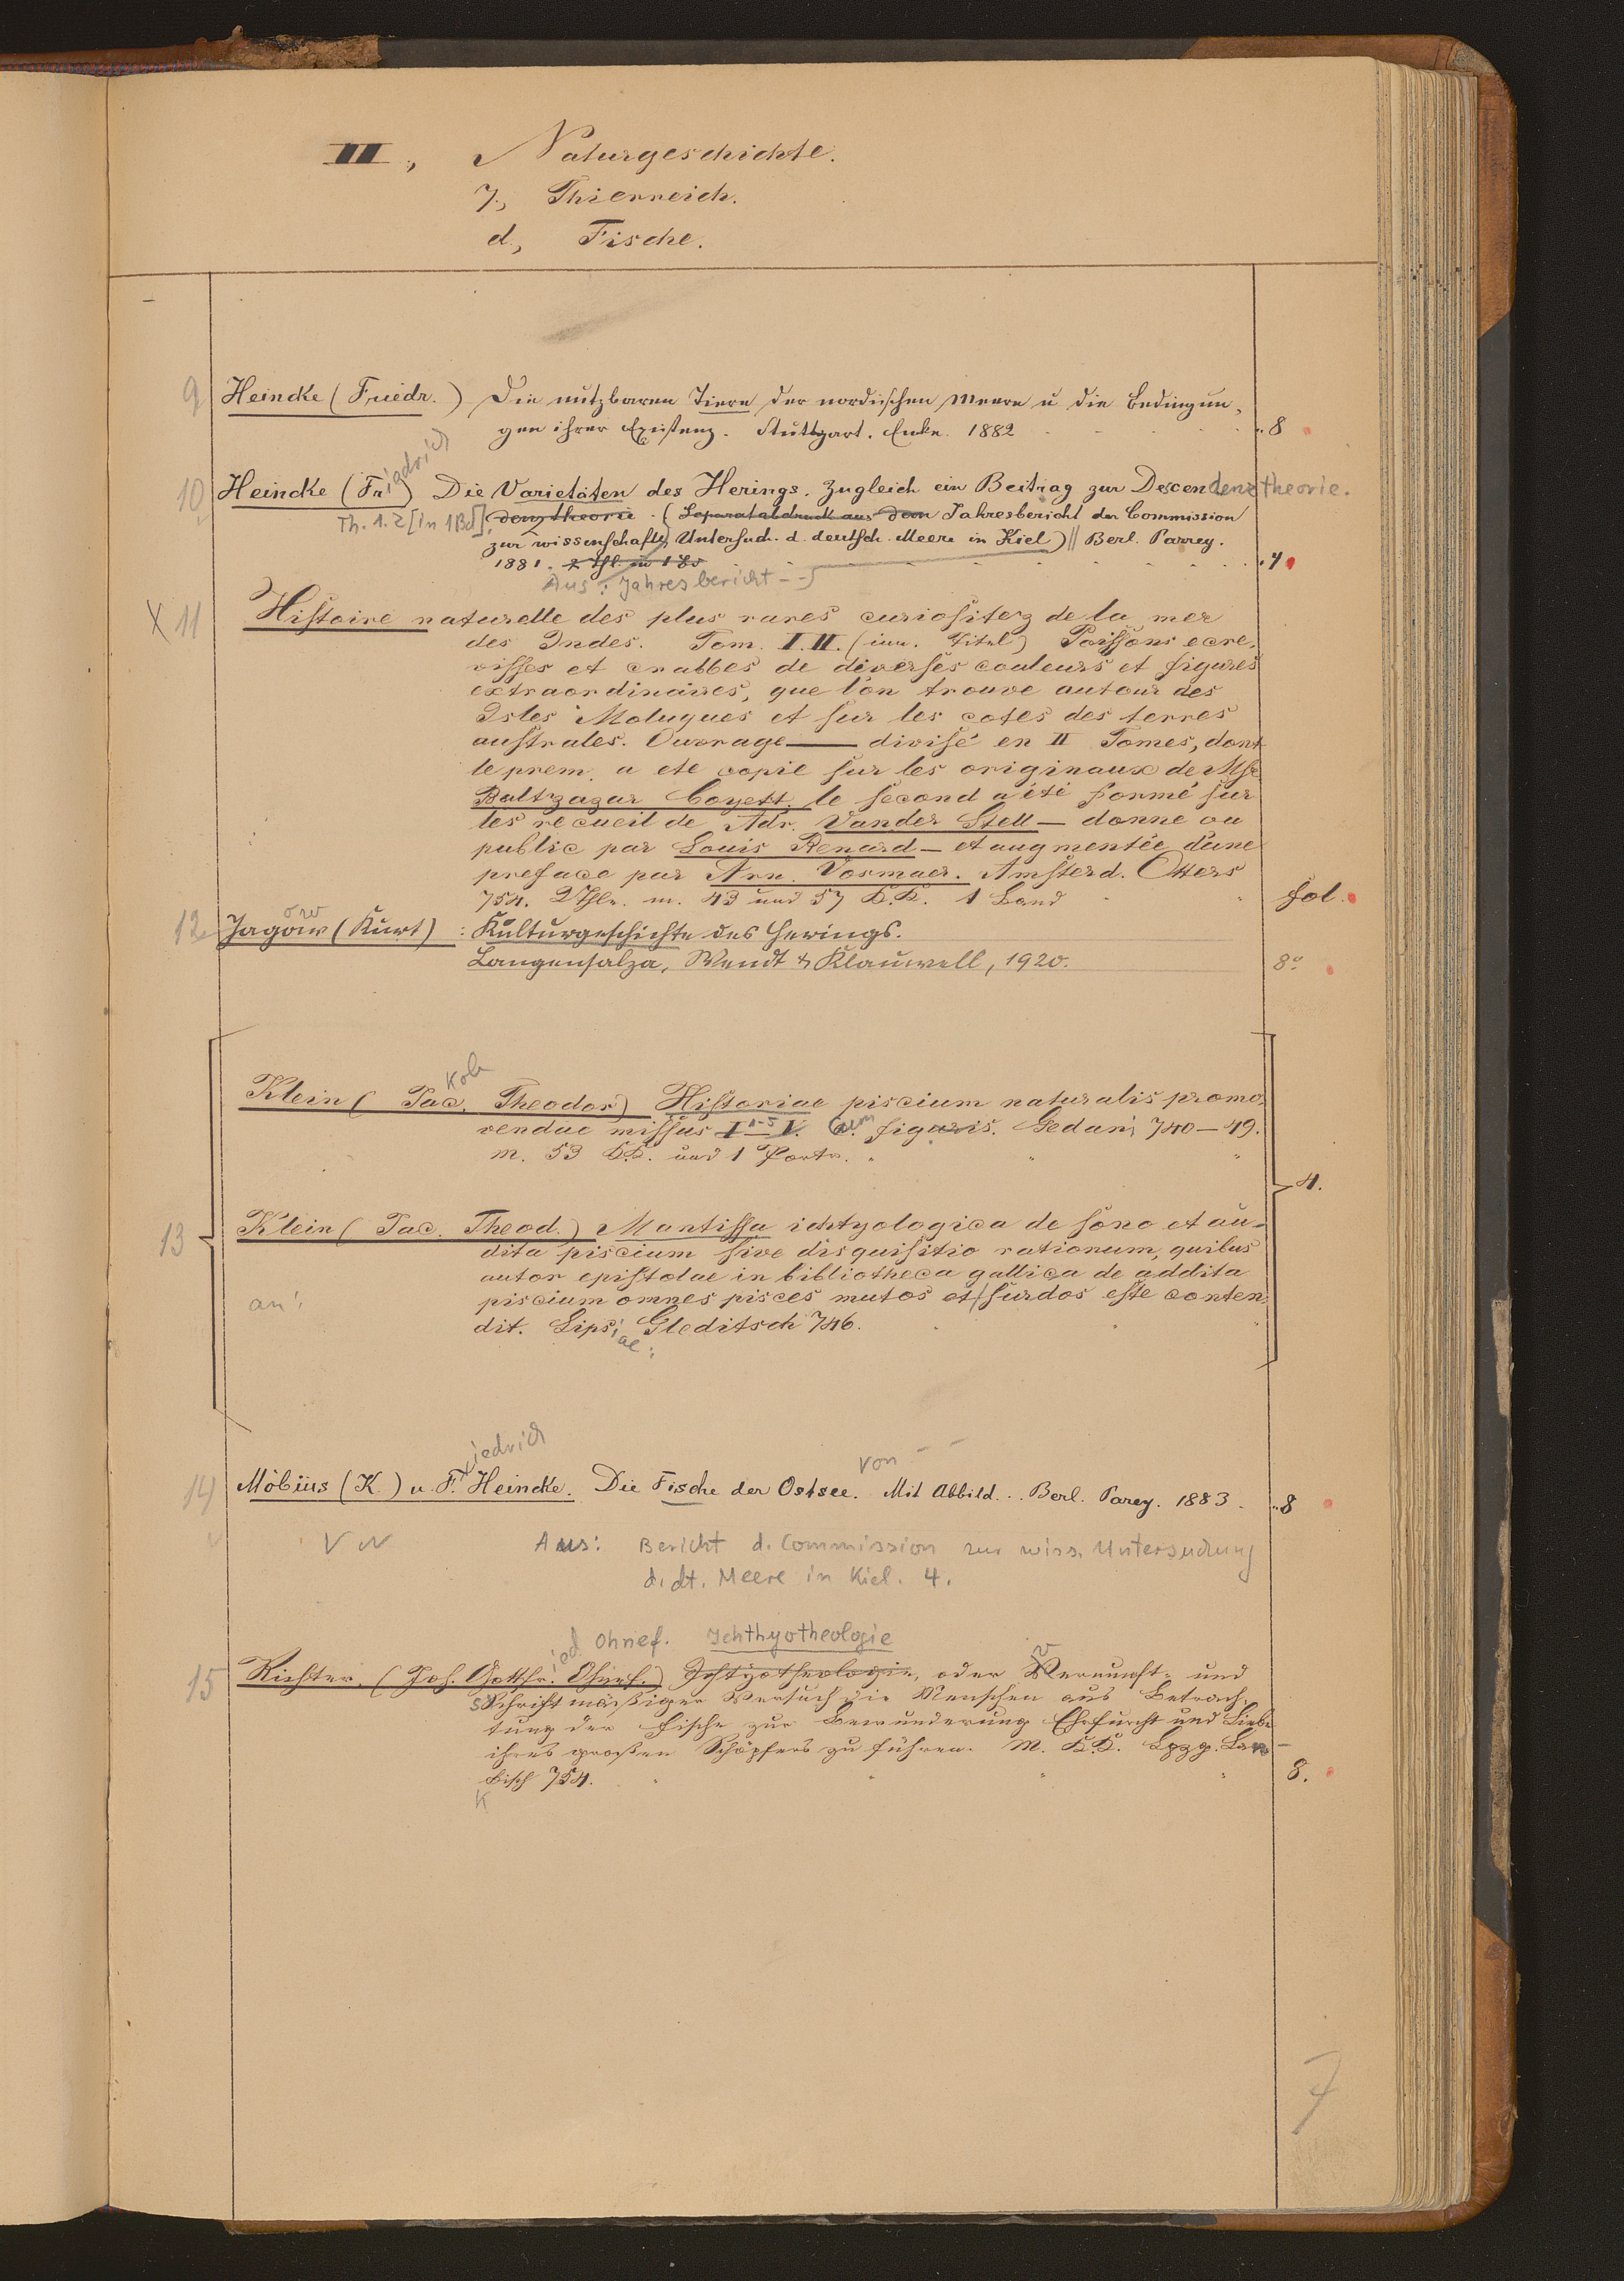 III., Naturgeschichte.
7., Thierreich.
d., Fische.
9 Heincke (Friedr.) Die nutzbaren Tiere der nordischen Meere u die Bedingun-
gen ihrer Existenz. Stuttgart. Enke. 1882 8
iedrich
10 Heincke (Fr.) Die Varietäten des Herings. Zugleich ein Beitrag zur Descendenztheorie.
Th. 1.2 [in 1 Bd] denztheorie. (Separatabdruck aus dem Jahresbericht der Commission
zur wissenschaftl. Untersuch. d. deutsch. Meere in Kiel) || Berl. Parrey.
1881. 2 Thl. in 1 Bd 4
Aus: Jahresbericht --
X 11 Histoire naturelle des plus rares curiositez de la mer
des Indes. Tom. I. II. (inn. Titel) Poissons ecre-
visses et crabbes de diverses couleurs et figures
extraordinaires, que l'on trouve autour des
Isles Moluques et sur les cotes des terres
australes. Ouvrage — divisé en II Tomes, dont
le prem. a ete copié sur les originaux de Msr
Baltzazar Coyett. le second a été formé sur
les recueil de Adr. Vander Stell — donne au
public par Louis Renard — et augmentée d'une
preface par Arn. Vosmaer. Amsterd. Otters
754. 2 Thle. m. 43 und 57 K.K. 1 Band fol.
ow
12 Jagow (Kurt) : Kulturgeschichte des Herings.
Langensalza, Wendt & Klauwell, 1920. 8°
kob
Klein (Jac. Theodor) Historiae piscium naturalis promo-
vendae missus I–V. 1-5 cum figuris. Gedani 740–49.
m. 53 K.K. und 1 Portr.
4.
13 Klein (Jac. Theod.) Mantissa ichtyologica de sono et au-
dita piscium sive disquisitio rationum, quibus
autor epistolae in bibliotheca gallica de addita
an: piscium omnes pisces mutos et surdos esse conten-
dit. Lips. Gleditsch 746.
iae:
iedrich von --
14 Möbius (K.) u. F. Heincke. Die Fische der Ostsee. Mit Abbild... Berl. Parey. 1883. 8
Aus: Bericht d. Commission zur wiss. Untersuchung
d. dt. Meere in Kiel. 4.
ied Ohnef. Ichthyotheologie
15 Richter. (Joh. Gottfr. Ohnef.) Ichtyotheologie, oder Vernunft- und
Schriftmäßiger Versuch die Menschen aus Betrach-
tung der Fische zur Bewunderung Ehrfurcht und Liebe
ihres großen Schöpfers zu führen. M. K.K. Lpzg. Lan-
kisch 754. 8.
K
7